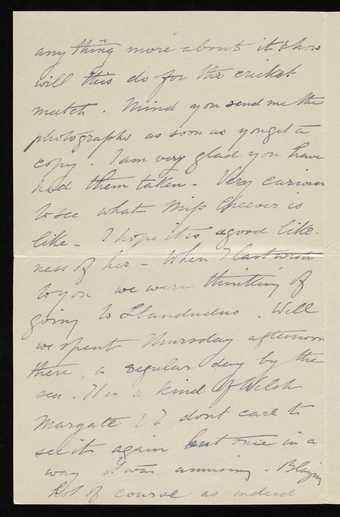 any thing more about it & how
will this do for the cricket
match. Mind you send me the
photographs as soon as you get a
copy. I am very glad you have
had them taken - Very curious
to see what Miss is
like - I hope it is a good like-
ness of her - When I last wrote
to you we were thinking of
going to Llandudno. Well
we spent Thursday afternoon
there, a regular day by the
sea. It is a kind of Welsh
Margate & I dont care to
see it again but once in a
way it was amusing. Blazing
hot of course as indeed